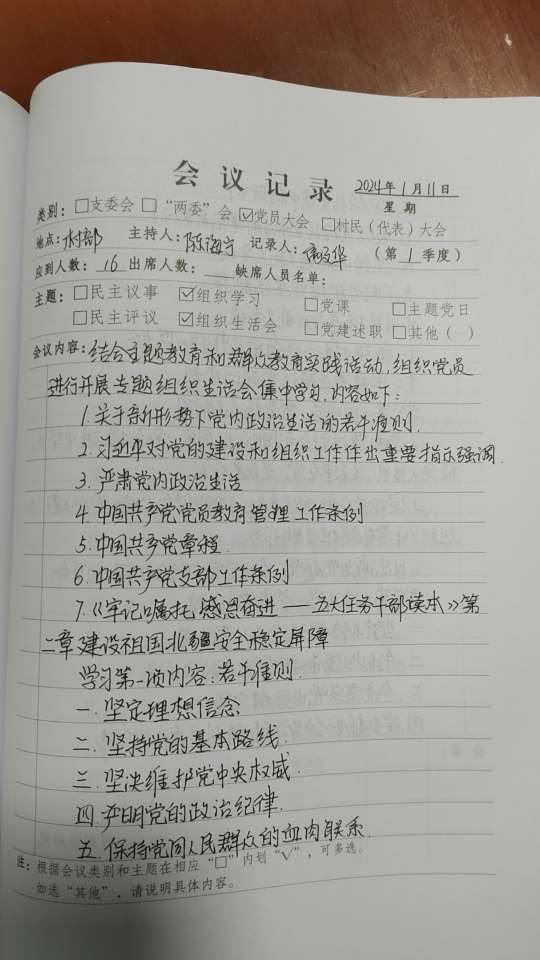 会议记录 2024年1月11日
星期
类别：□支委会 □“两委”会 ☑党员大会 □村民（代表）大会
地点：村部 主持人：陈海宁 记录人：（第1季度）
应到人数：16 出席人数： 缺席人员名单：
主题：□民主议事 ☑组织学习 □党课 □主题党日
□民主评议 ☑组织生活会 □党建述职 □其他（ ）
会议内容：结合主题教育和群众教育实践活动，组织党员
进行开展专题组织生活会集中学习，内容如下：
1.关于新形势下党内政治生活的若干准则.
2.习近平对党的建设和组织工作作出重要指示强调.
3.严肃党内政治生活
4.中国共产党党员教育管理工作条例
5.中国共产党章程.
6.中国共产党支部工作条例
7.《牢记嘱托 感恩奋进——五大任务干部读本》第
二章建设祖国北疆安全稳定屏障
学习第一项内容：若干准则.
一.坚定理想信念
二.坚持党的基本路线.
三.坚决维护党中央权威
四.严明党的政治纪律.
五.保持党同人民群众的血肉联系.
注：根据会议类别和主题在相应“□”内划“√”，可多选。
如选“其他”，请说明具体内容。